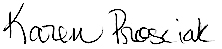 Karen Prosciak